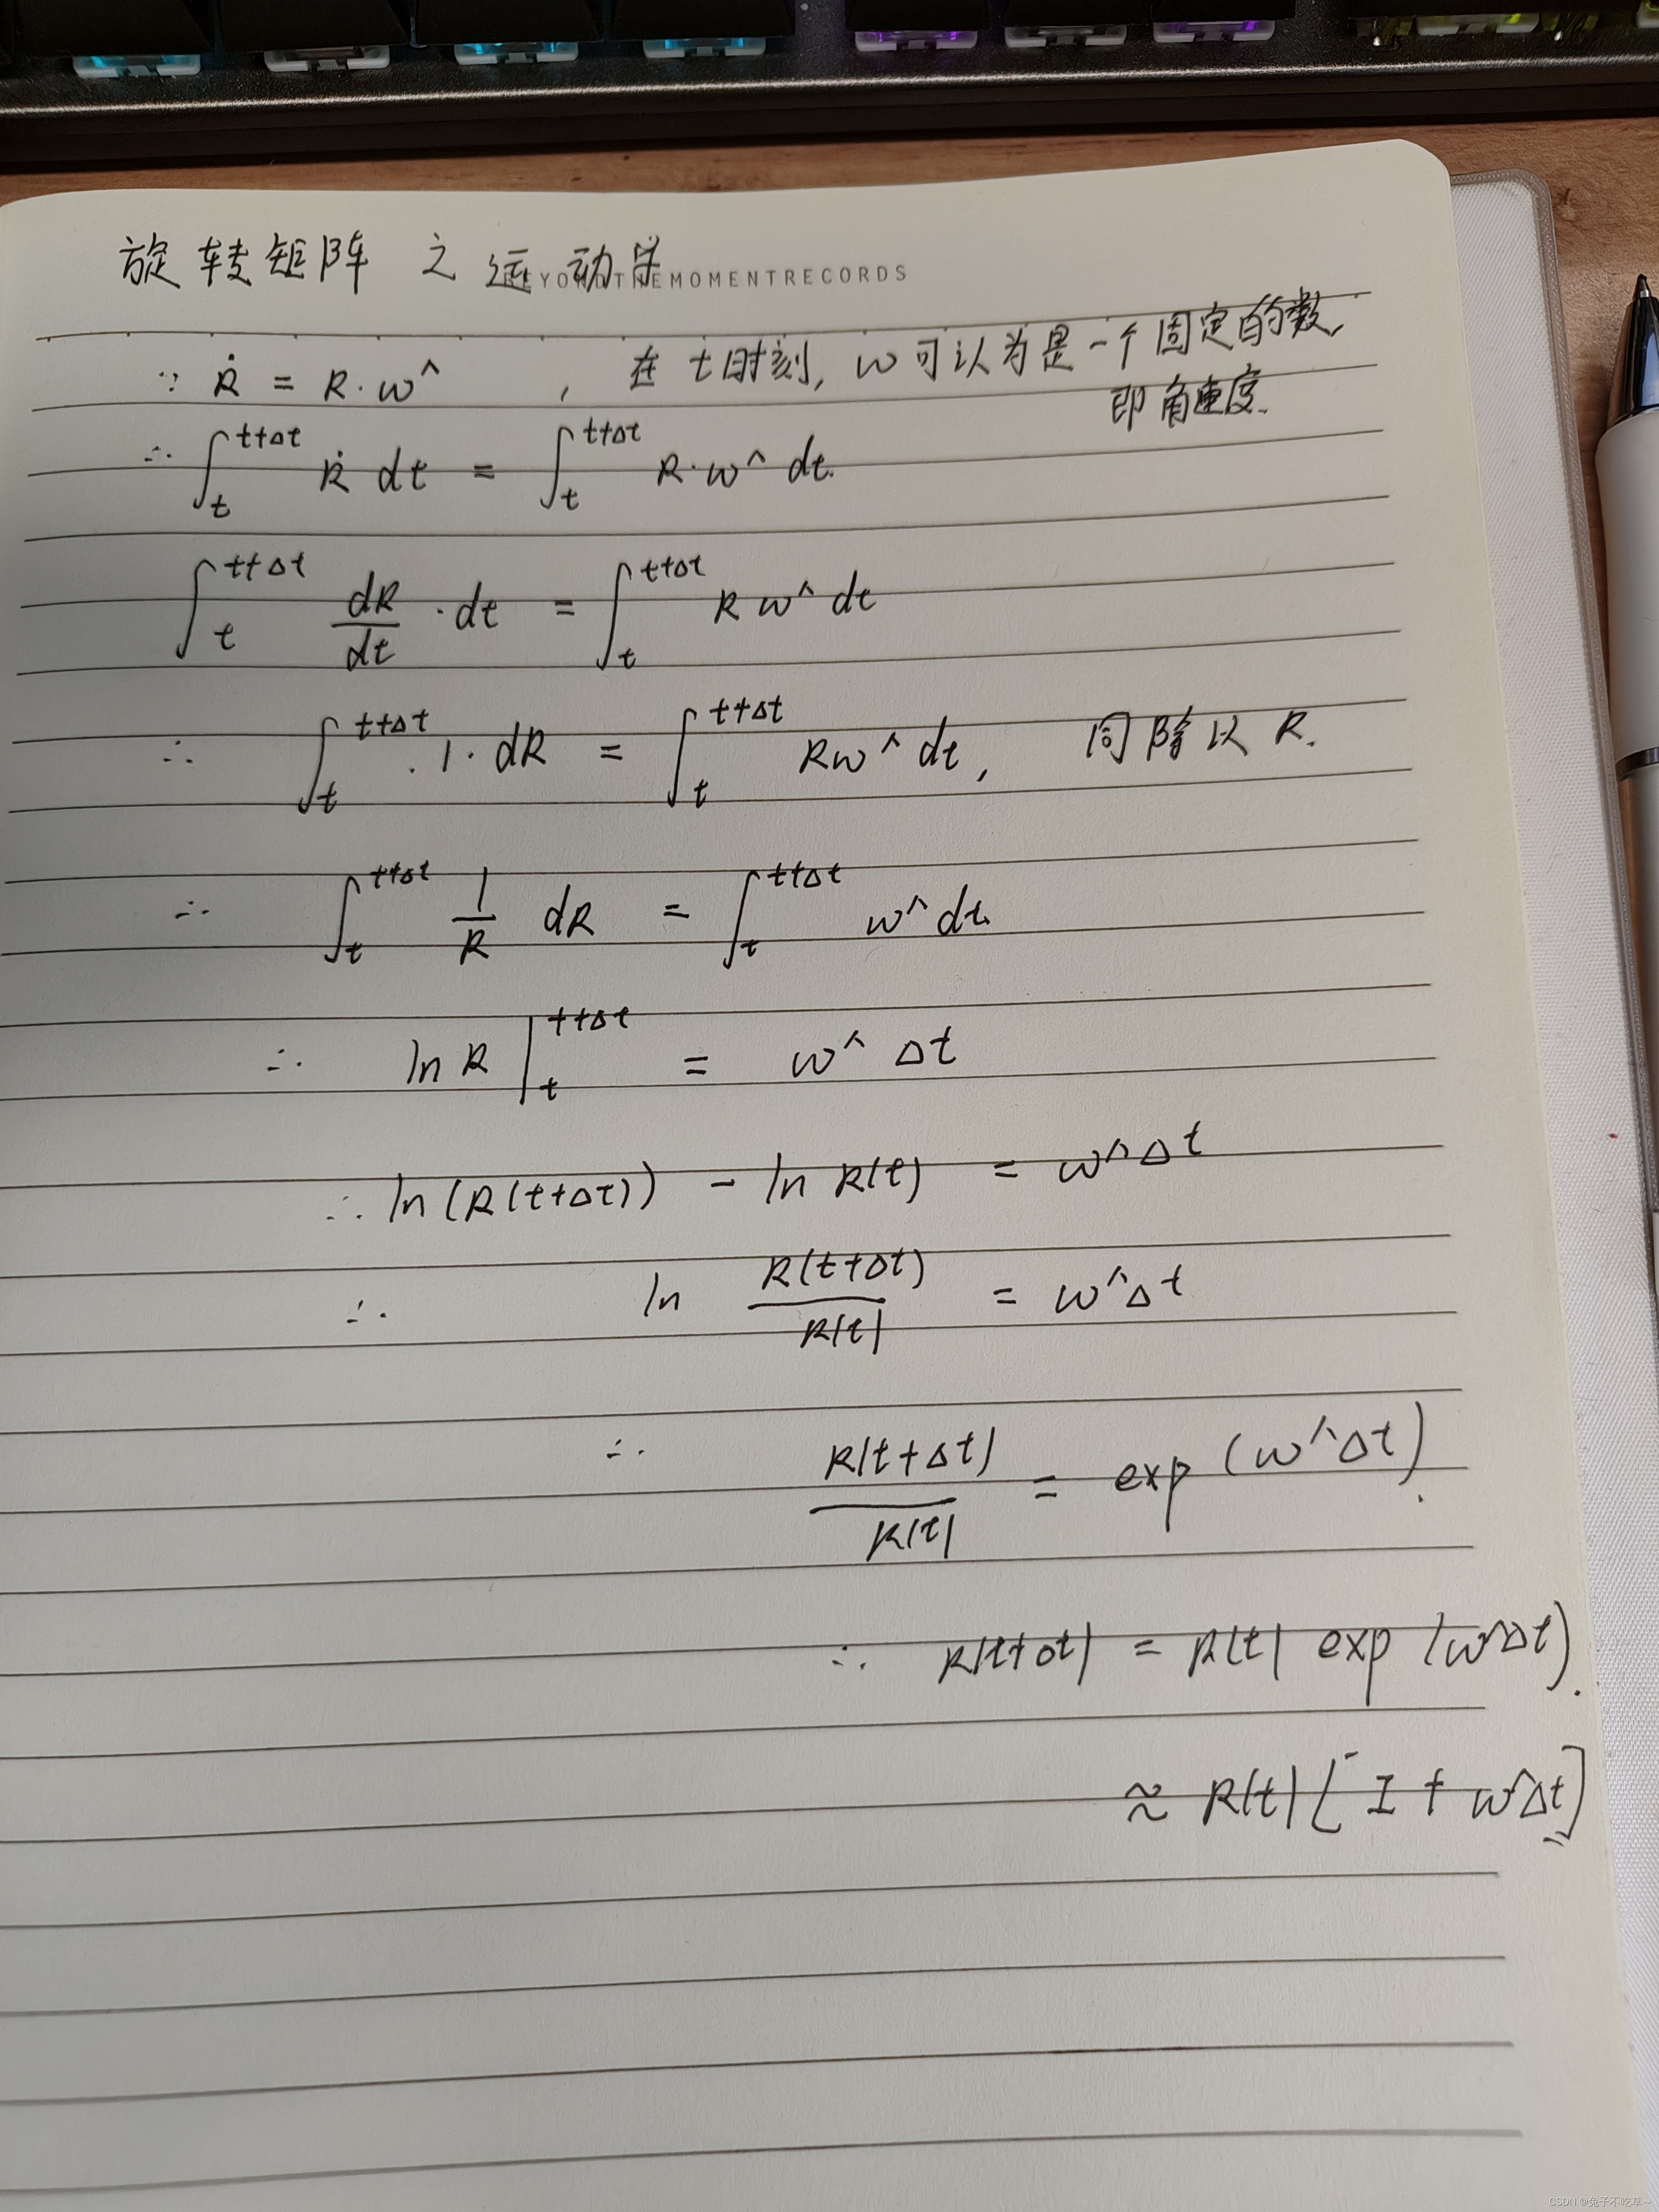 旋转矩阵之运动学
BEYONDTHEMOMENTRECORDS
∵ Ṙ = R·w^ , 在t时刻, w可认为是一个固定的数,
即角速度.
∴ ∫_t^{t+Δt} Ṙ dt = ∫_t^{t+Δt} R·w^ dt.
∫_t^{t+Δt} dR/dt · dt = ∫_t^{t+Δt} R w^ dt
∴ ∫_t^{t+Δt} 1· dR = ∫_t^{t+Δt} R w^ dt, 同除以 R.
∴ ∫_t^{t+Δt} 1/R dR = ∫_t^{t+Δt} w^ dt.
∴ ln R |_t^{t+Δt} = w^ Δt
∴ ln(R(t+Δt)) - ln R(t) = w^Δt
∴ ln R(t+Δt)/R(t) = w^Δt
∴ R(t+Δt)/R(t) = exp(w^Δt).
∴ R(t+Δt) = R(t) exp(w^Δt).
≈ R(t)[I + w^Δt]
CSDN @兔子不吃草~